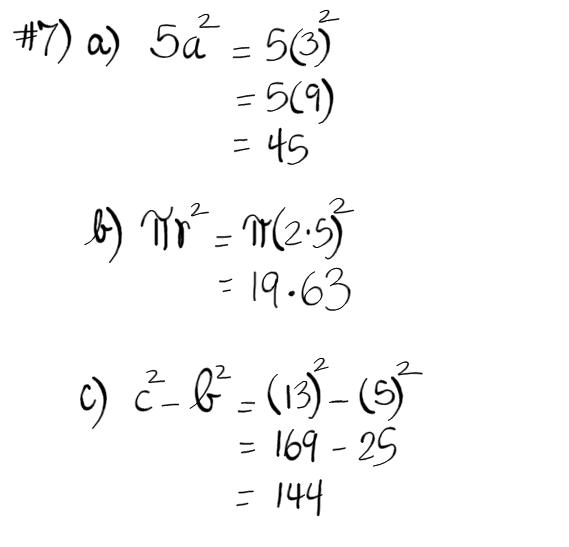 #7) a) 5a² = 5(3)²
= 5(9)
= 45
b) πr² = π(2·5)²
= 19·63
c) c² - b² = (13)² - (5)²
= 169 - 25
= 144